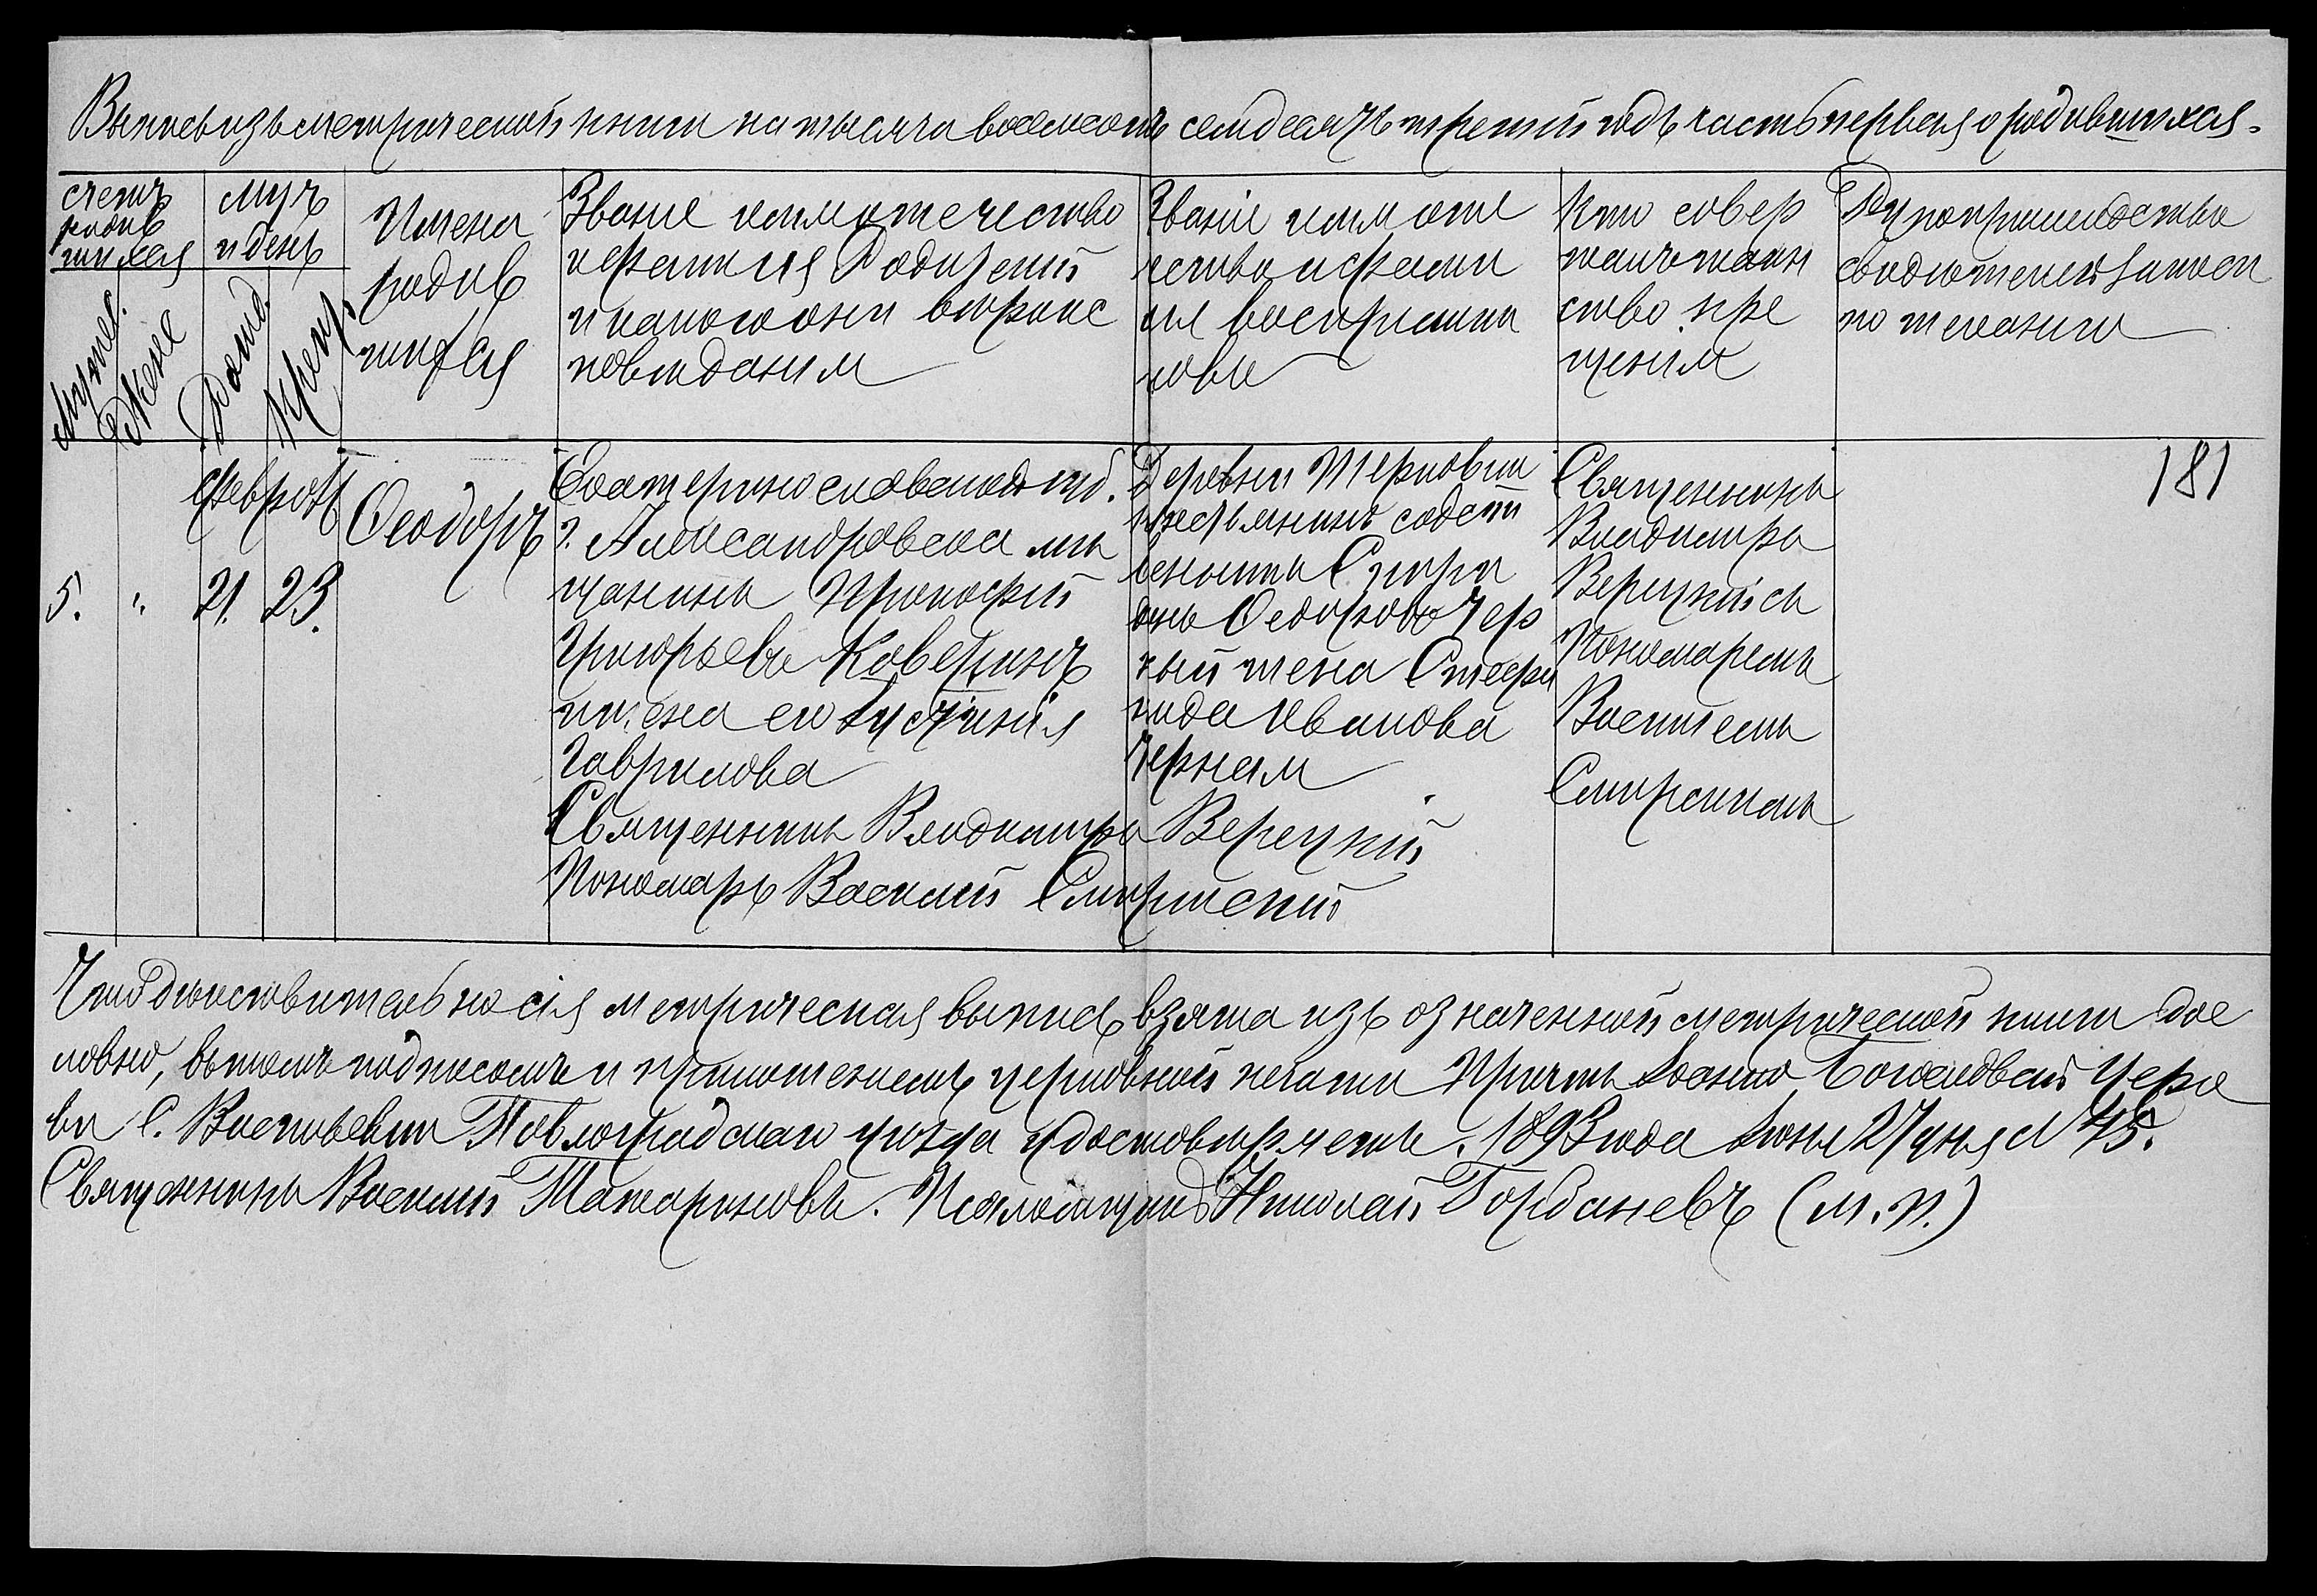 Выпись изъ метрической книги на тысяча восемсотъ семдесятъ третій годъ часть первая о родившихся.
счетъ
родив
шихся
Мужес.
Женс
мцъ
и день
Рожд.
Крещ.
Имена
родив
шихся
Званіе имя отечество
и фамилія Родителей
и какого они вѣроис
повѣданія
Званіе имя оте
чество и фами
лія воспріемни
ковъ
Кто совер
шалъ таин
ство кре
щенія
Рукоприкладство
свидѣтелей записи
по желанію
5.
"
Февраль
21.
23.
Ѳеодоръ
Екатеринославской губ.
г. Александровска мѣ
щанинъ Прокофій
Григорьевъ Каверинъ
и жена его Іустинія
Гаврилова
Деревни Терновки
крестьянинъ собст
венникъ Спири
донъ Ѳедоровъ Чер
ный жена Стефа
нида Иванова
Черная
Священникъ
Владиміръ
Верецкій съ
Пономаремъ
Василіемъ
181
Священникъ Владиміръ Верецкій
Пономарь Василій
Что дѣйствительно сія метрическая выпись взята изъ означенной метрической книги дос
ловно, въ томъ подписомъ и приложеніемъ церковной печати Причтъ Іоанно Богословской Церк
ви С. Васильевки Павлоградскаго уѣзда удостовѣряетъ. 1893 года Іюня 27 дня № 45.
Священникъ Василій Татариновъ. Псаломщикъ Николай Горбаневъ (М. П.)